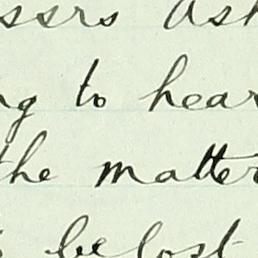 ssrs Ash
ng to hear
the matter
be lost